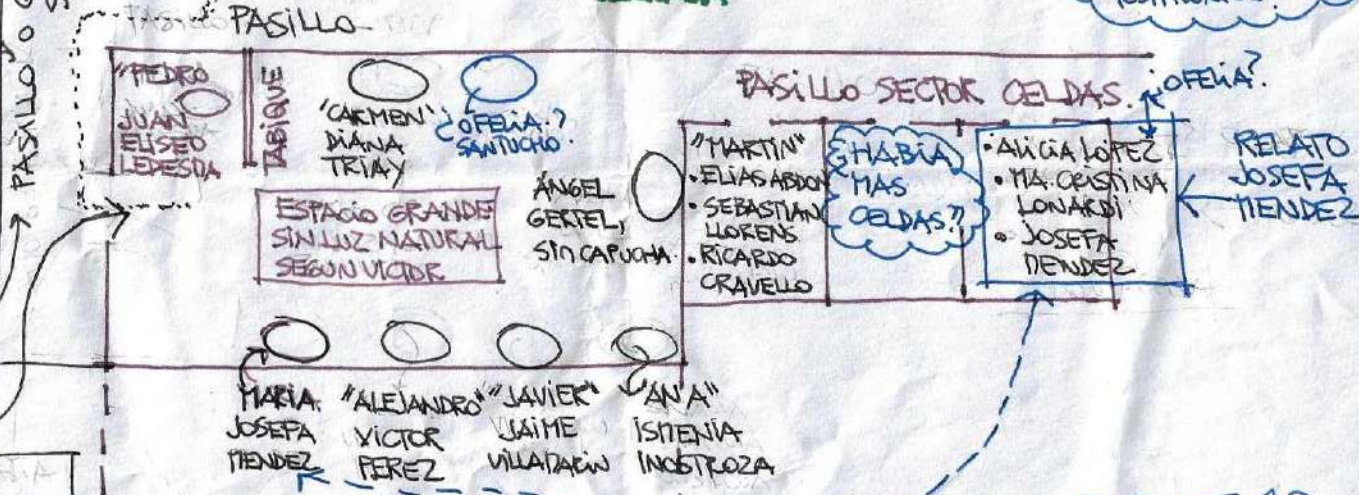 PASILLO
PASILLO
"PEDRO
JUAN
ELISEO
LEDESMA
TABIQUE
"CARMEN"
DIANA
TRIAY
¿OFELIA?
SANTUCHO.
PASILLO SECTOR CELDAS.
¿OFELIA?
ESPACIO GRANDE
SIN LUZ NATURAL
SEGUN VICTOR
ÁNGEL
GERTEL,
SIN CAPUCHA.
"MARTIN"
• ELIAS ABDON
• SEBASTIAN
LLORENS
• RICARDO
CRAVELLO
¿HABIA
MAS
CELDAS?
• ALICIA LOPEZ
• MA. CRISTINA
LONARDI
• JOSEFA
MENDEZ
RELATO
JOSEFA
MENDEZ
MARIA
JOSEFA
MENDEZ
"ALEJANDRO"
VICTOR
PEREZ
"JAVIER"
JAIME
VILLAMARIN
"ANA"
ISMENIA
INOSTROZA